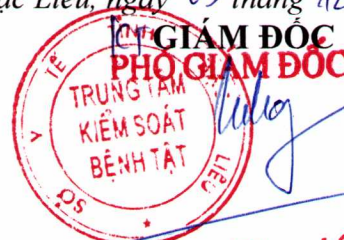 Liêu, ngày 09 tháng
GIÁM ĐỐC
PHÓ GIÁM ĐỐC
TỈNH
SỞ Y TẾ
TRUNG TÂM
KIỂM SOÁT
BỆNH TẬT
LIÊU